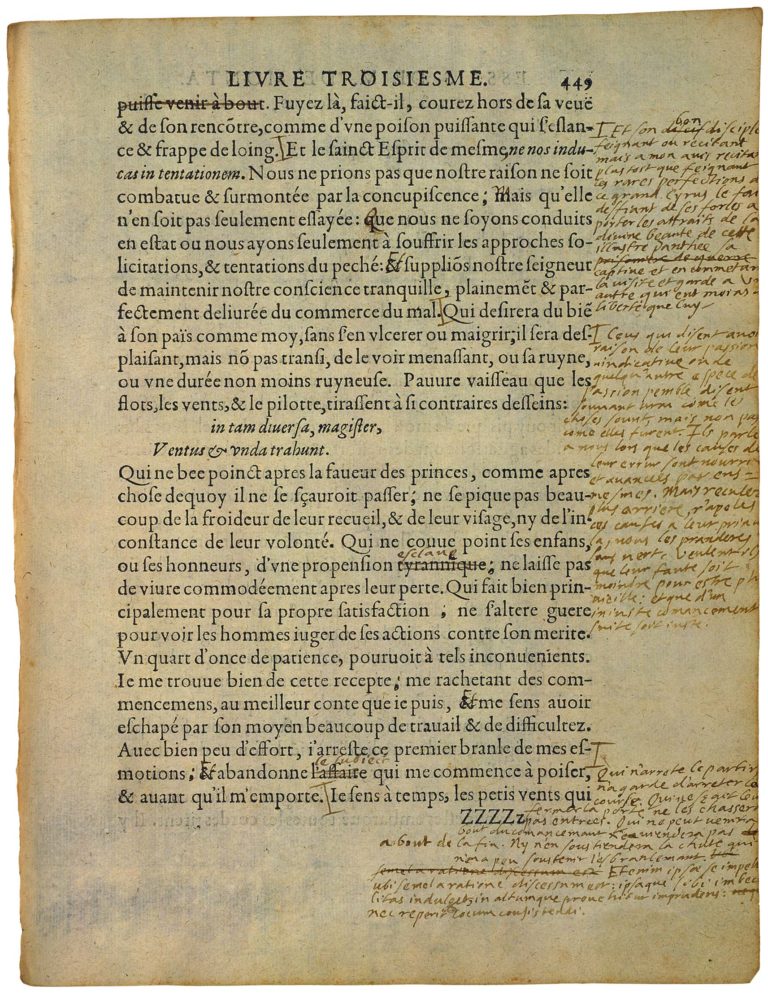 LIVRE TROISIESME. 449
puisse venir à bout. Fuyez là, faict-il, courez hors de sa veuë
& de son rencõtre, comme d'vne poison puissante qui s'eslan-
ce & frappe de loing. Et le sainct Esprit de mesme, ne nos indu-
cas in tentationem. Nous ne prions pas que nostre raison ne soit
combatue & surmontée par la concupiscence; Mais qu'elle
n'en soit pas seulement essayée: Que nous ne soyons conduits
en estat ou nous ayons seulement à souffrir les approches so-
licitations, & tentations du peché: Et suppliõs nostre seigneur
de maintenir nostre conscience tranquille, plainemẽt & par-
fectement deliurée du commerce du mal. Qui desirera du biẽ
à son païs comme moy, sans s'en vlcerer ou maigrir; il sera des-
plaisant, mais nõ pas transi, de le voir menassant, ou sa ruyne,
ou vne durée non moins ruyneuse. Pauure vaisseau que les
flots, les vents, & le pilotte, tirassent à si contraires desseins:
in tam diuersa, magister,
Ventus & vnda trahunt.
Qui ne bee poinct apres la faueur des princes, comme apres
chose dequoy il ne se sçauroit passer; ne se pique pas beau-
coup de la froideur de leur recueil, & de leur visage, ny de l'in-
constance de leur volonté. Qui ne couue point ses enfans,
esclave
ou ses honneurs, d'vne propension tyrannique; ne laisse pas
de viure commodéement apres leur perte. Qui fait bien prin-
cipalement pour sa propre satisfaction; ne s'altere guere
pour voir les hommes iuger de ses actions contre son merite.
Vn quart d'once de patience, pouruoit à tels inconuenients.
Ie me trouue bien de cette recepte; me rachetant des com-
mencemens, au meilleur conte que ie puis, Et me sens auoir
eschapé par son moyen beaucoup de trauail & de difficultez.
Auec bien peu d'effort, i'arreste ce premier branle de mes es-
le subiect
motions; Et abandonne l'affaire qui me commence à poiser,
& auant qu'il m'emporte. Ie sens à temps, les petits vents qui
ZZZZz
Et son bon disciple
feignant ou recitant
mais a mon avis recitant
plustost que feignant
les rares perfections de
ce grand Cyrus le faict
desfiant de ses forces a
porter les attraits de la
divine beaute de cette
illustre Panthee sa
captive et en commetant
la visite et garde a un
autre qui eut moins
liberte que luy
Ceus qui disent avoir
raison de leur passion
vindicative ou de
quelqu'autre espece de
passion penible disent
souvant vrai come les
choses sont mais non pas
come elles furent. Ils parlent
a nous lors que les causes de
leur errur sont nourries
et avancees par eus
mesmes. Mais reculez
plus arriere, r'apeles
ces causes a leur principe
la, vous les prandrez
sans vert. Veulent
que leur faute soit
moindre pour estre plus
vieille: et que d'un
iniuste comancement
suite soit iuste.
Qui n'arrete le partir
n'a garde d'arreter la
course. Qui ne sçait leur
fermer la porte ne les chassera
pas entrees. Qui ne peut venir a
bout du comancemant ne viendera pas
a bout de la fin. Ny n'en soustiendera la chute qui
n'en a peu soustenir l'esbranlemant
semel a ratione discessum est Etenim ipsae se impellunt
ubi semel a ratione discessum est: ipsaque sibi imbecil
litas indulget in altumque provehitur imprudens:
nec reperit locum consistendi.